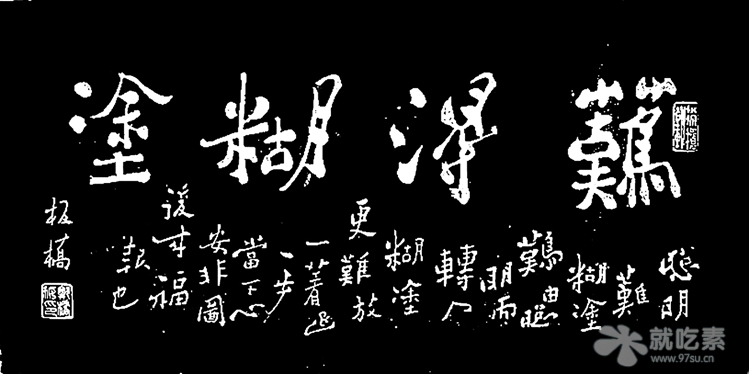 難得糊塗
聰明
難
糊塗
難由聰
明而
轉入
糊塗
更難放
一著退
一步
當下心
安非圖
後來福
報也
板橋
就吃素
www.97su.cn